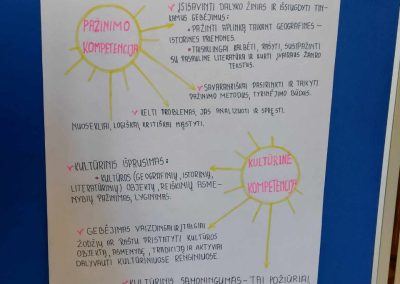 ✓ ĮSISAVINTI DALYKO ŽINIAS IR IŠSIUGDYTI TIN-
KAMUS GEBĖJIMUS:
• PAŽINTI APLINKĄ TAIKANT GEOGRAFINES-
ISTORINES PRIEMONES.
• TAISYKLINGAI KALBĖTI, RAŠYTI, SUSIPAŽINTI
SU PASAULINE LITERATŪRA IR KURTI ĮVAIRAUS ŽANRO
TEKSTUS.
PAŽINIMO
KOMPETENCIJA
✓ SAVARANKIŠKAI PASIRINKTI IR TAIKYTI
PAŽINIMO METODUS, TYRINĖJIMO BŪDUS.
✓ KELTI PROBLEMAS, JAS ANALIZUOTI IR SPRĘSTI.
NUOSEKLIAI, LOGIŠKAI, KRITIŠKAI MĄSTYTI.
✓ KULTŪRINIS IŠPRUSIMAS:
• KULTŪROS (GEOGRAFINIŲ, ISTORINIŲ,
LITERATŪRINIŲ) OBJEKTŲ, REIŠKINIŲ, ASME-
NYBIŲ PAŽINIMAS, LYGINIMAS.
KULTŪRINĖ
KOMPETENCIJA
✓ GEBĖJIMAS VAIZDINGAI IR ĮTAIGIAI
ŽODŽIU AR RAŠTU PRISTATYTI KULTŪROS
OBJEKTĄ, ASMENYBĘ, TRADICIJĄ IR AKTYVIAI
DALYVAUTI KULTŪRINIUOSE RENGINIUOSE
✓ KULTŪRINIS SĄMONINGUMAS - TAI POŽIŪRIAI